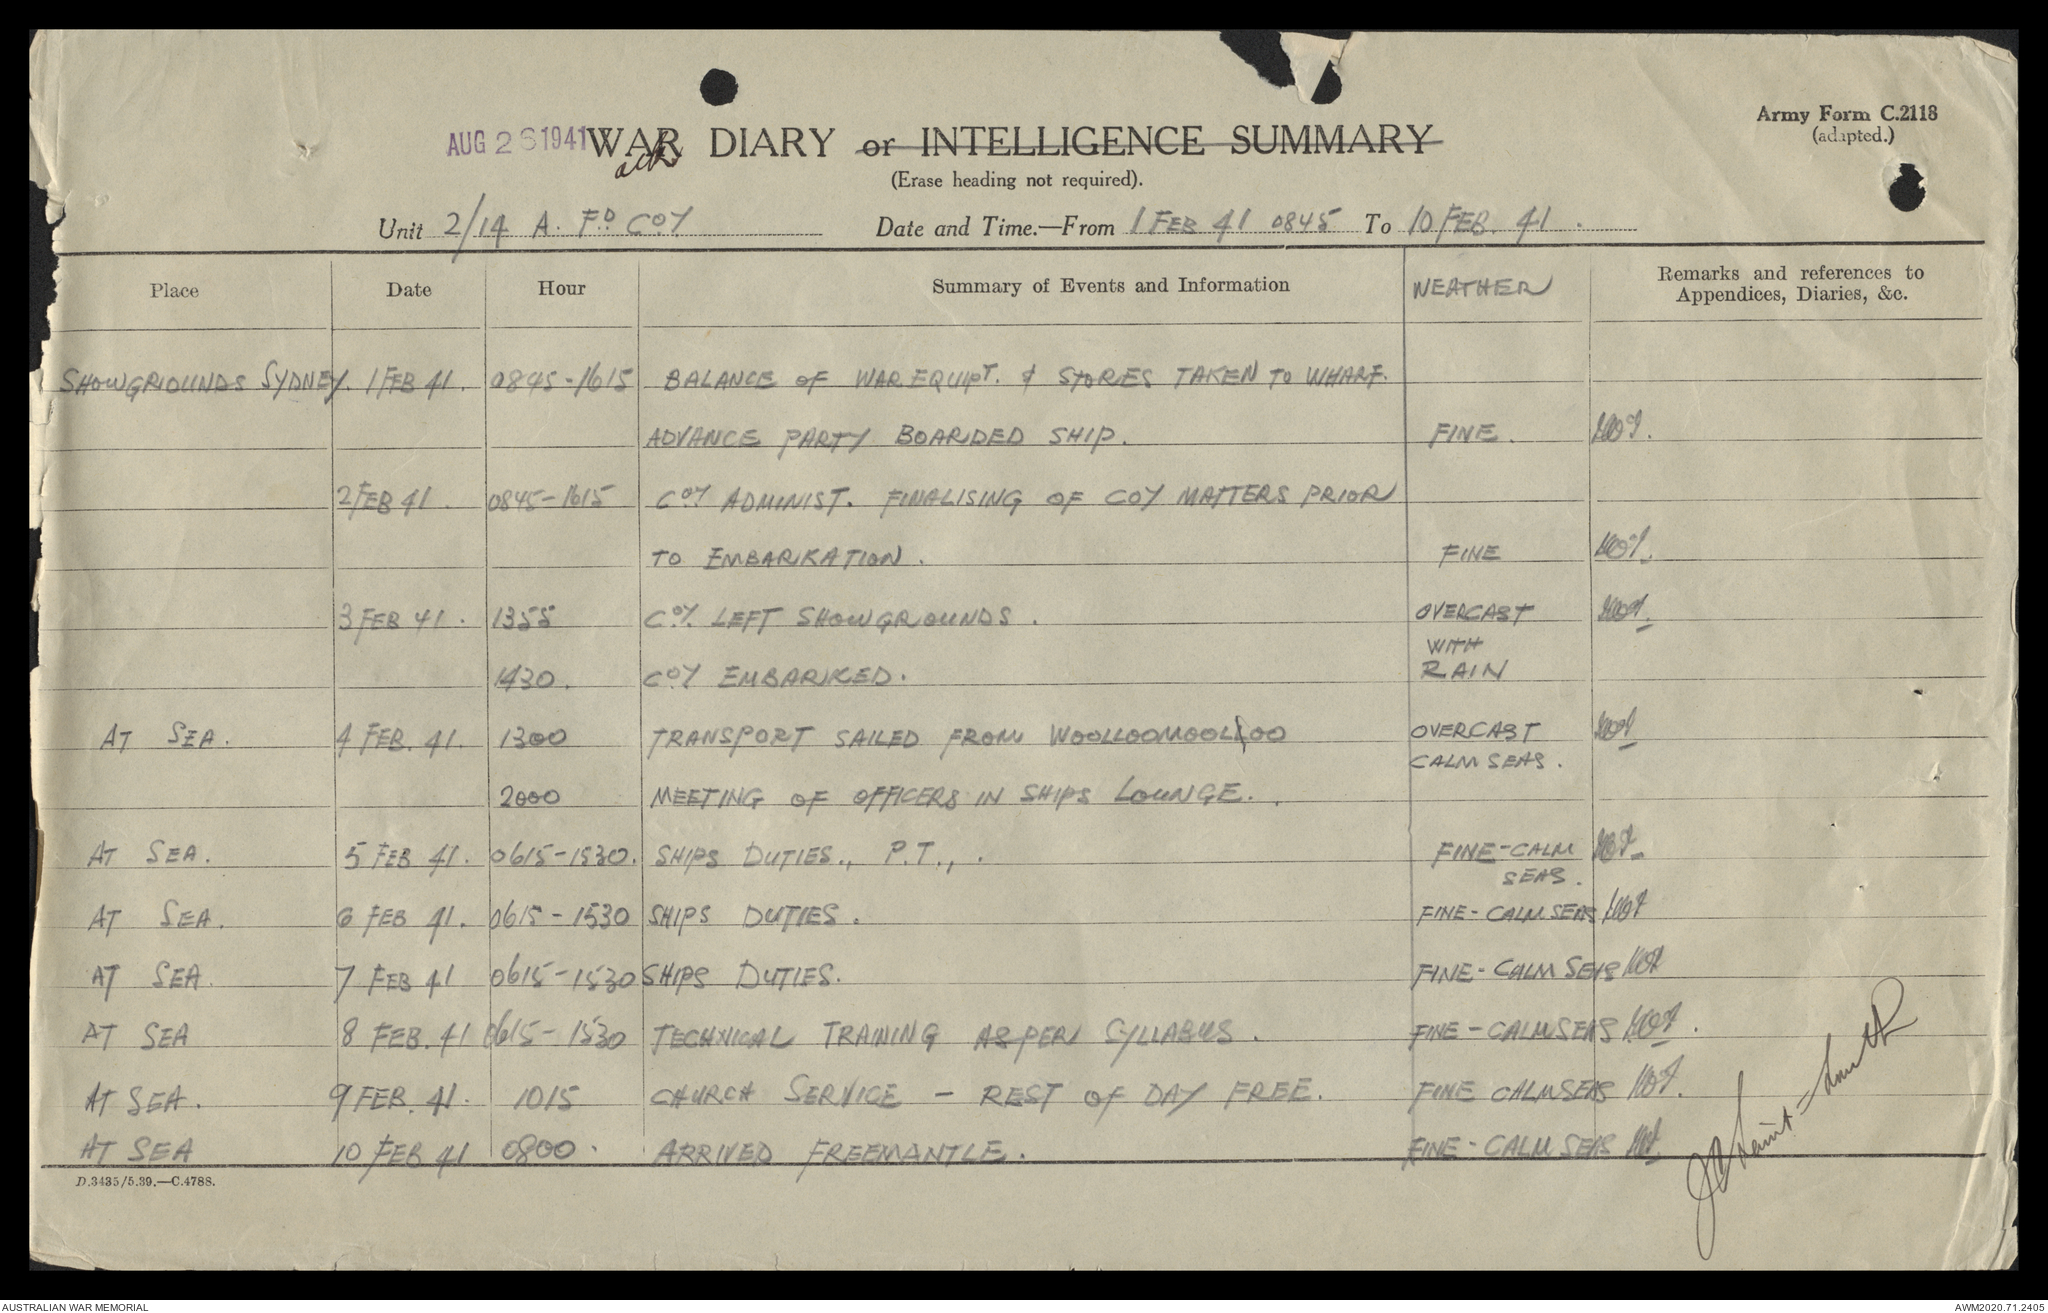 Army Form C.2118
(adapted.)
AUG 26 1941
WAR DIARY or INTELLIGENCE SUMMARY
(Erase heading not required).
Unit 2/14 A. FD COY Date and Time.—From 1 FEB 41 0845 To 10 FEB. 41.
Place Date Hour Summary of Events and Information WEATHER Remarks and references to
Appendices, Diaries, &c.
SHOWGROUNDS SYDNEY. 1 FEB 41. 0845-1615 BALANCE OF WAR EQUIPT. & STORES TAKEN TO WHARF.
ADVANCE PARTY BOARDED SHIP. FINE.
2 FEB 41. 0845-1615 COY ADMINIST. FINALISING OF COY MATTERS PRIOR
TO EMBARKATION. FINE
3 FEB 41. 1355 COY. LEFT SHOWGROUNDS. OVERCAST
WITH
1430. COY EMBARKED. RAIN
AT SEA. 4 FEB. 41. 1300 TRANSPORT SAILED FROM WOOLLOOMOOLOO OVERCAST
CALM SEAS.
2000 MEETING OF OFFICERS IN SHIPS LOUNGE.
AT SEA. 5 FEB 41. 0615-1530. SHIPS DUTIES., P.T.,. FINE-CALM
SEAS.
AT SEA. 6 FEB 41. 0615-1530 SHIPS DUTIES. FINE-CALM SEAS
AT SEA. 7 FEB 41 0615-1530 SHIPS DUTIES. FINE-CALM SEAS
AT SEA 8 FEB. 41 0615-1530 TECHNICAL TRAINING AS PER SYLLABUS. FINE-CALM SEAS
AT SEA. 9 FEB. 41. 1015 CHURCH SERVICE - REST OF DAY FREE. FINE CALM SEAS
AT SEA 10 FEB 41 0800. ARRIVED FREEMANTLE. FINE-CALM SEAS
D.3435/5.39.—C.4788.
AUSTRALIAN WAR MEMORIAL
AWM2020.71.2405